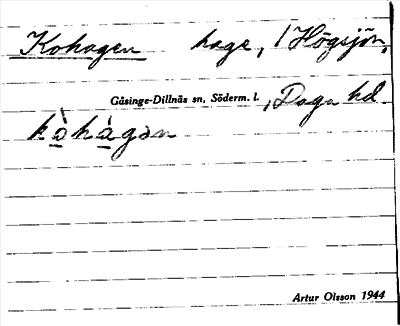 Kohagen hage, 1 Högsjön,
Gåsinge-Dillnäs sn, Söderm. l., Daga hd.
kò̱há̱gən
Artur Olsson 1944